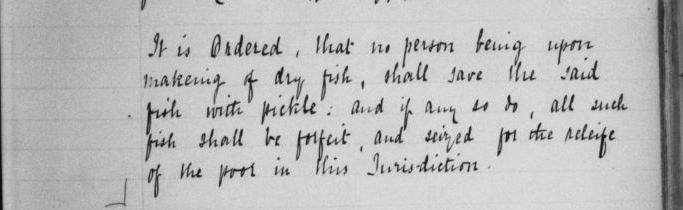 It is Ordered, that no person being upon
makeing of dry fish, shall save the said
fish with pickle: and if any so do, all such
fish shall be forfeit, and seized for the releife
of the poor in this Jurisdiction.